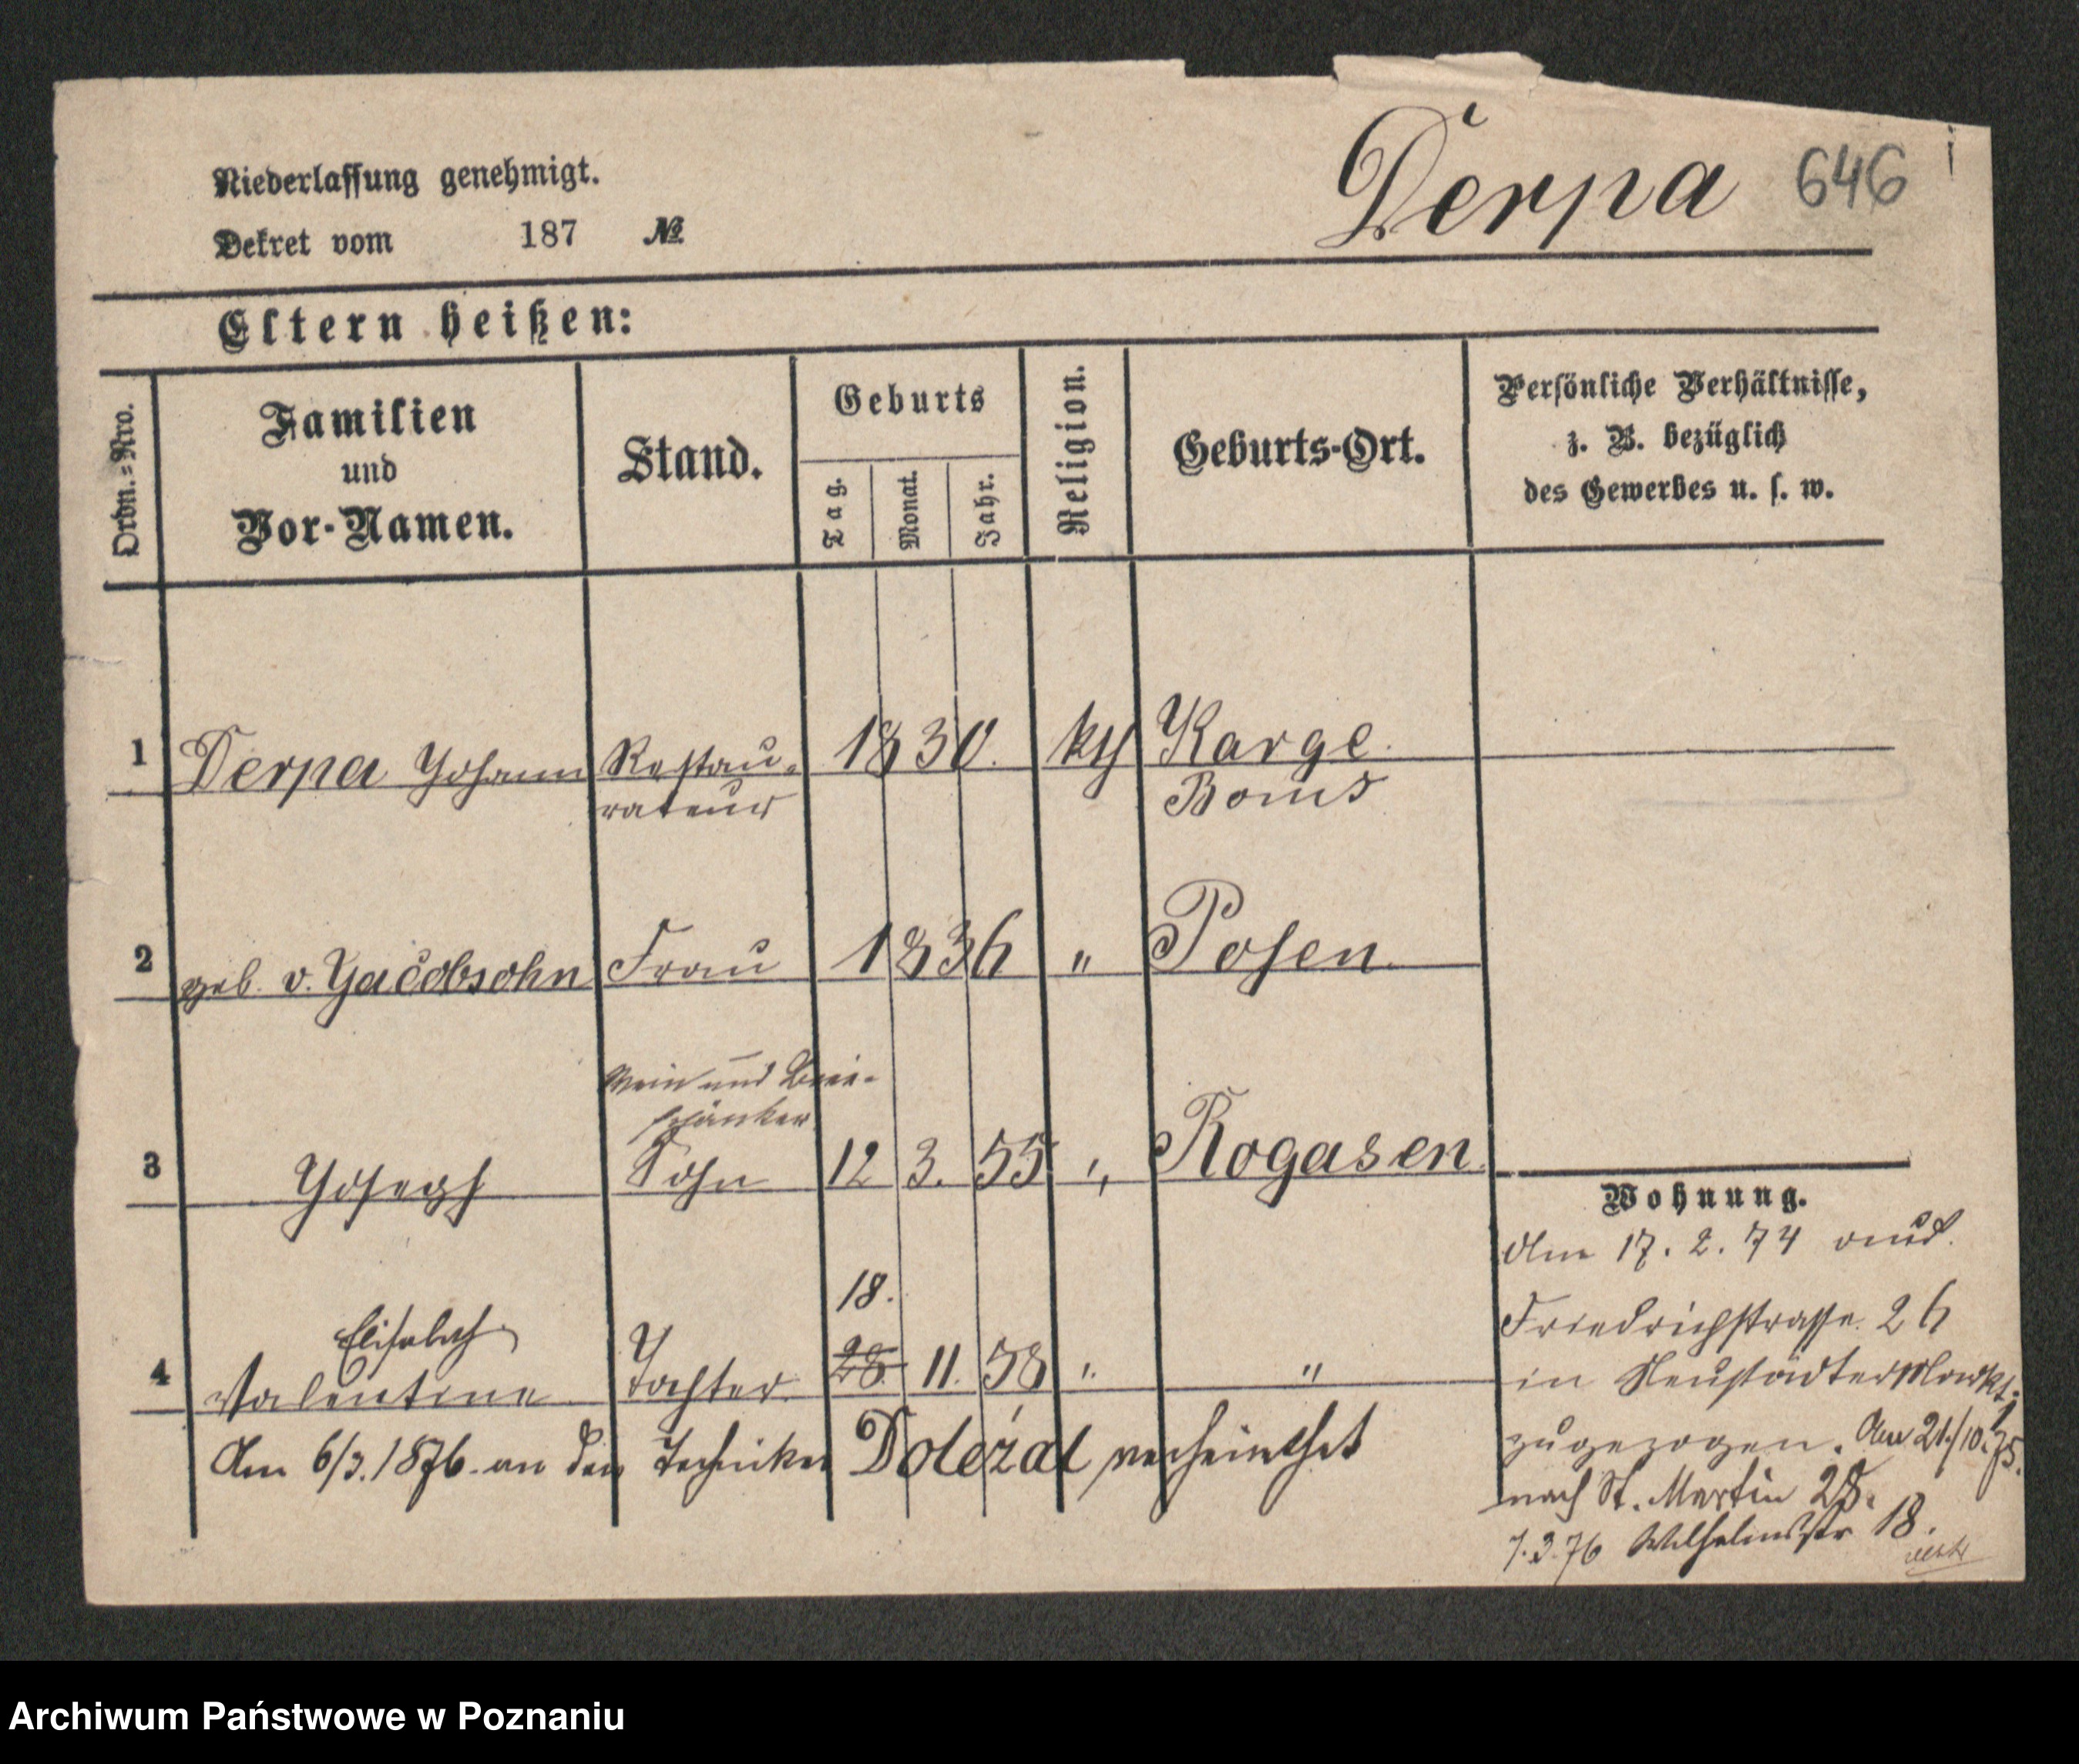 Derpa 646
Niederlassung genehmigt.
Dekret vom 187 №
Eltern heißen:
Ordn.=Nro.
Familien
und
Vor-Namen.
Stand.
Geburts
Tag.
Monat.
Jahr.
Religion.
Geburts-Ort.
Persönliche Verhältnisse,
z. B. bezüglich
des Gewerbes u. s. w.
1 Derpa Johann Restau- 1830. kth Karge.
rateur Bomst
2 geb. v. Jacobsohn Frau 1836 " Posen.
Wein und Bier-
schänker
3 Joseph Sohn 12 3. 55 " Rogasen
Wohnung.
Am 17. 2. 74 aus
18.
Friedrichstrasse 26
Elisabeth
4 Valentine Tochter 28. 11. 58 " "
in Neustädter Markt
zugezogen. Am 21/10. 75.
Am 6/3. 1876. an den Techniker Doležal verheirathet
nach St. Martin 28.
7.3.76 Wilhelmsstr 18.
Archiwum Państwowe w Poznaniu